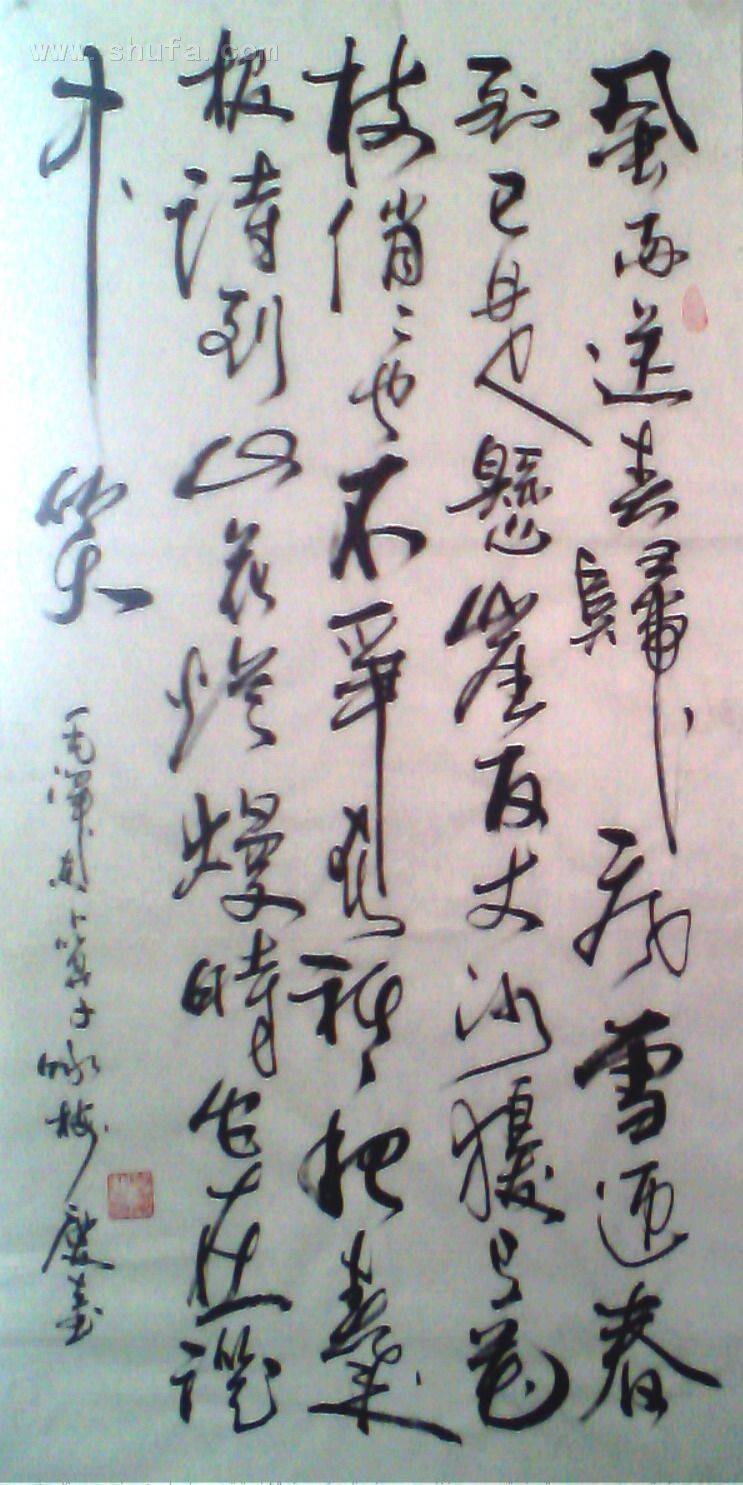 www.shufa.com
風雨送春歸飛雪迎春
到已是懸崖百丈冰猶有花
枝俏〻也不爭春祗把春來
报待到山花烂熳時她在叢
中笑
毛澤東卜算子咏梅